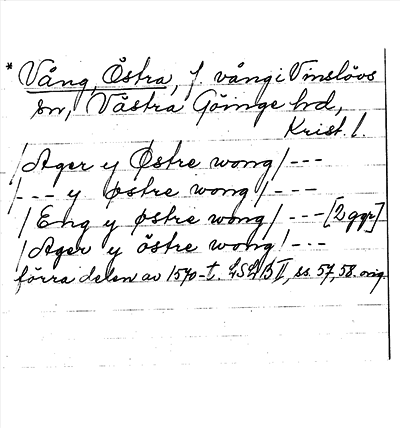 * Vång, Östra, f. vång i Vinslövs
sn, Västra Göinge hd,
Krist. l.
/Ager y Østre wong/ ---
/--- y østre wong/ ---
/Eng y østre wong/ --- [2 ggr]
/Ager y östre wong/ ---
förra delen av 1570-t. LSLB II, ss. 57, 58. orig.